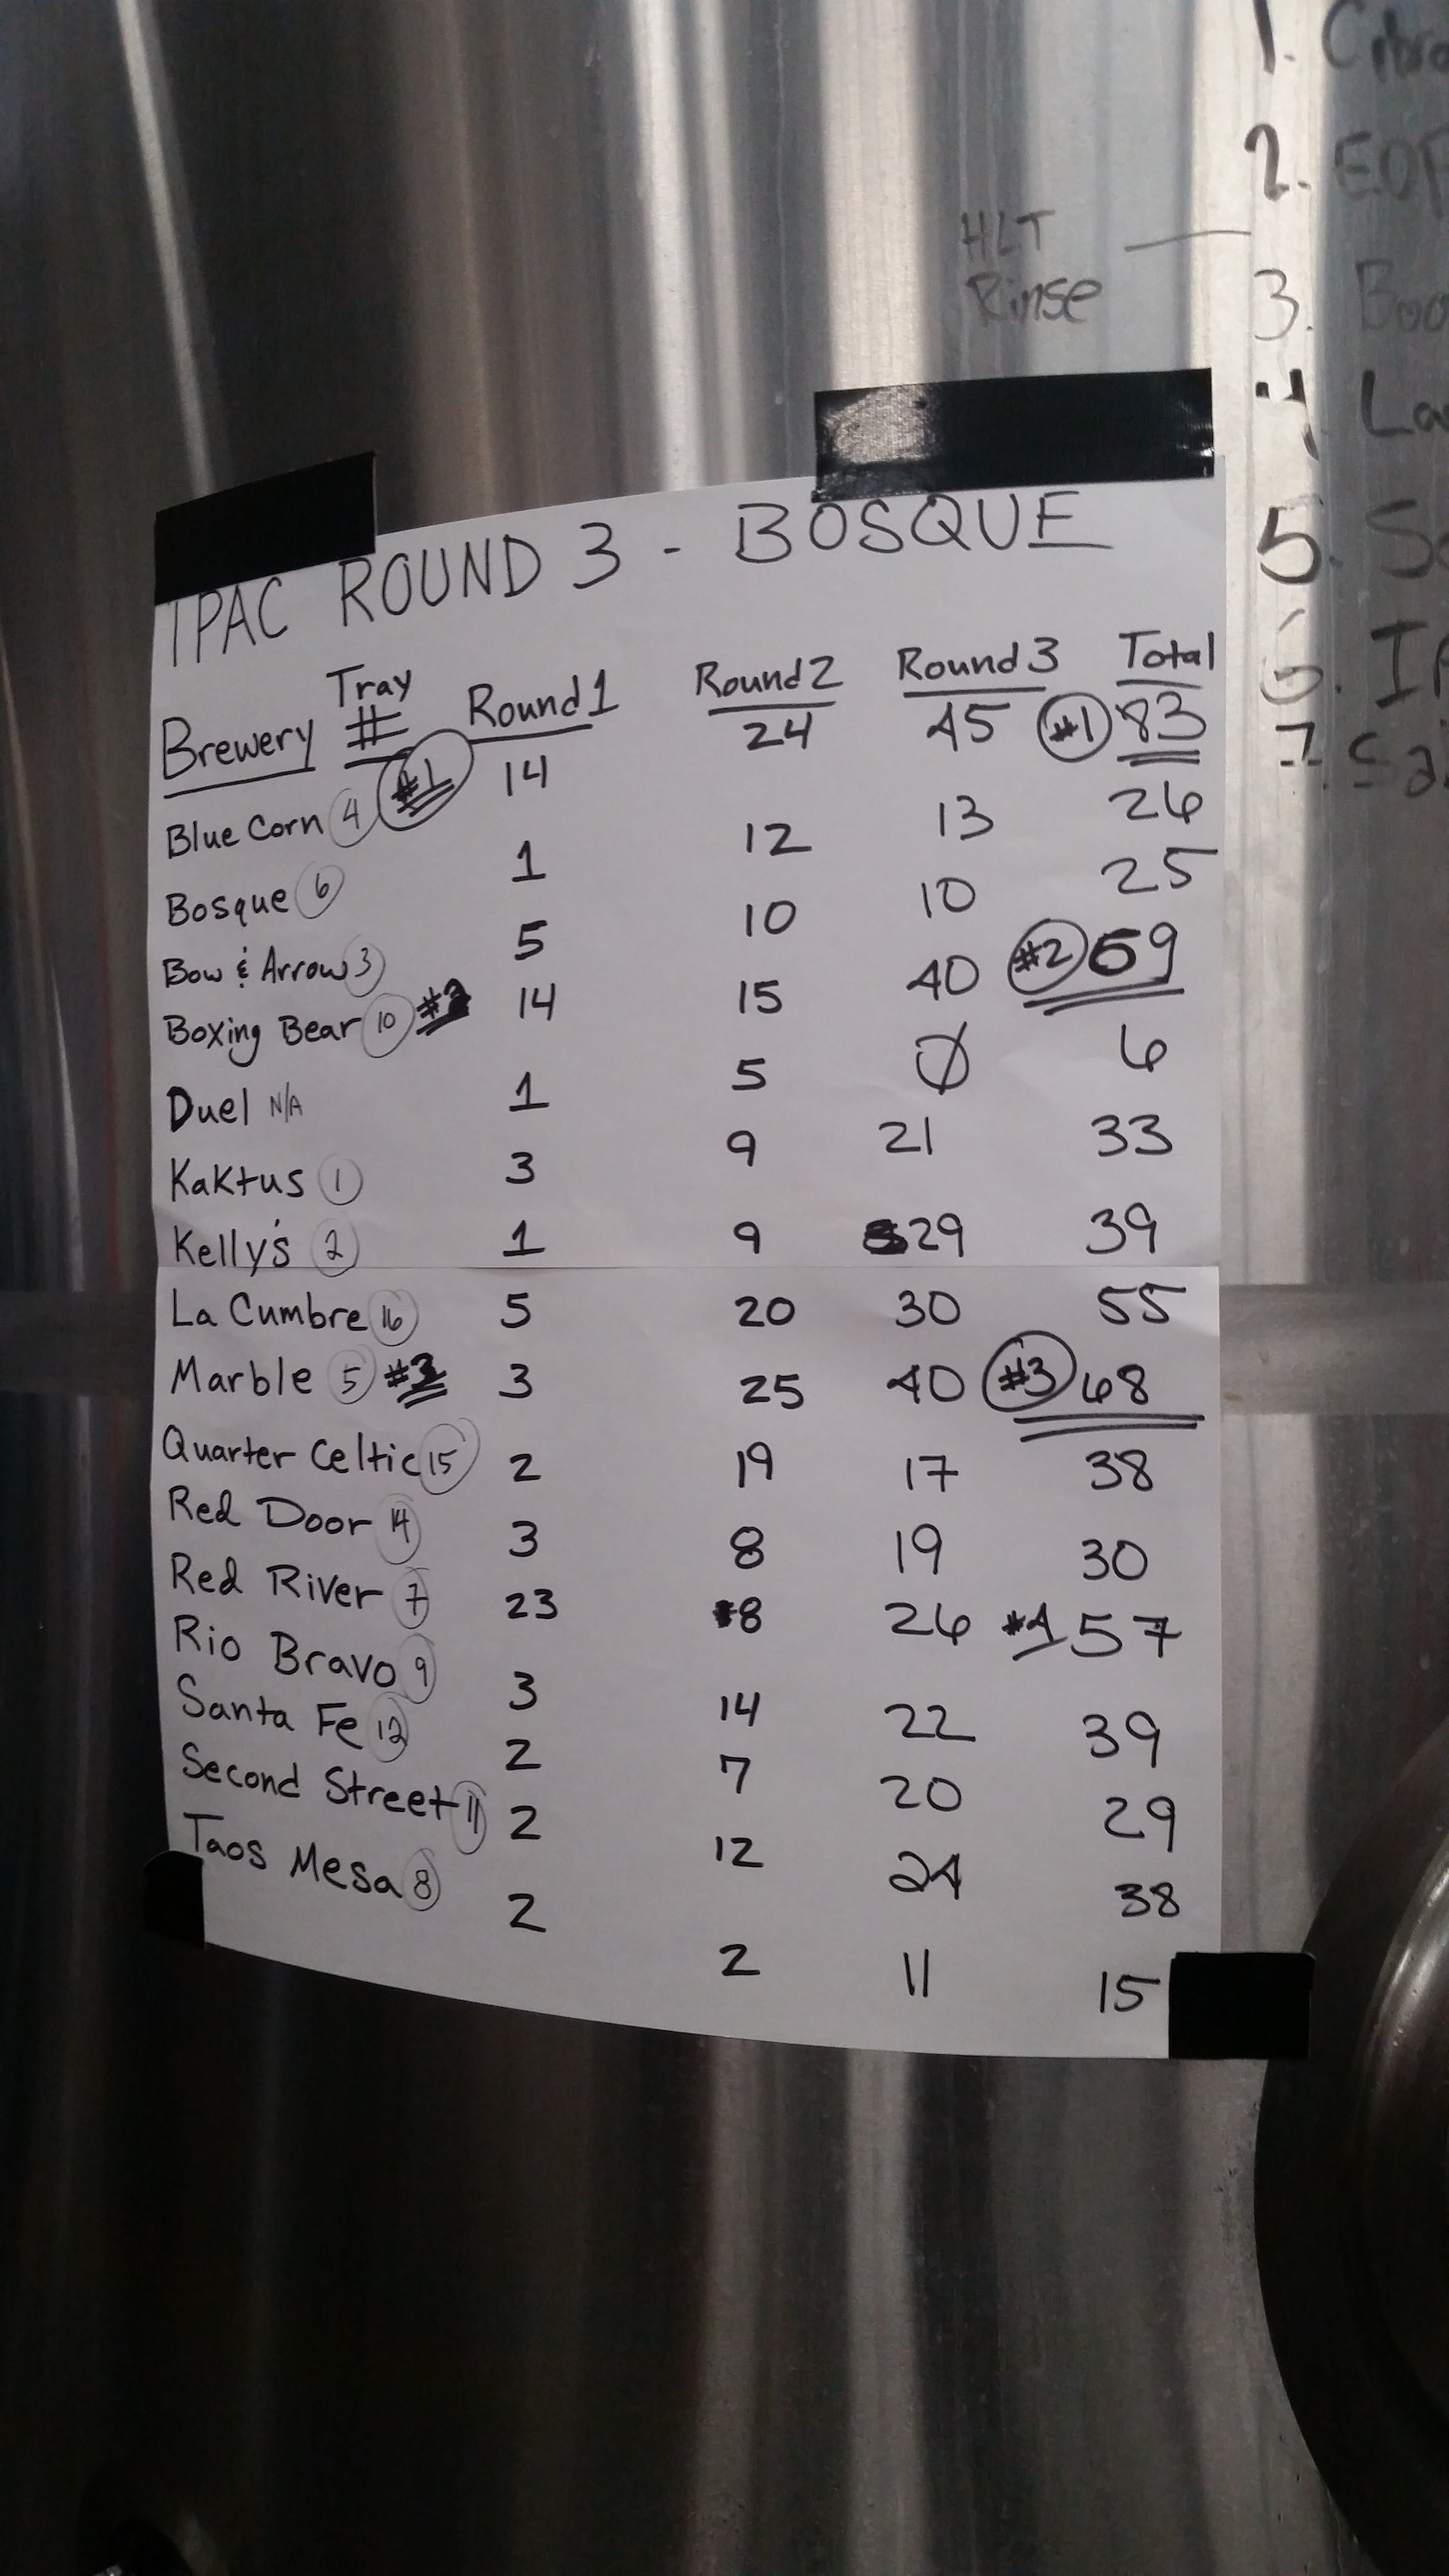 1. Citra
2. EOF
HLT
Rinse
3.
4 La
5.
6.
7.
IPAC ROUND 3 - BOSQUE
Brewery Tray # Round 1 Round 2 Round 3 Total
Blue Corn 4 #1 14 24 45 #1 83
Bosque 6 1 12 13 26
Bow & Arrow 3 5 10 10 25
Boxing Bear 10 #2 14 15 40 #2 69
Duel N/A 1 5 Ø 6
Kaktus 1 3 9 21 33
Kelly's 2 1 9 29 39
La Cumbre 16 5 20 30 55
Marble 5 #3 3 25 40 #3 68
Quarter Celtic 15 2 19 17 38
Red Door 14 3 8 19 30
Red River 7 23 8 26 #4 57
Rio Bravo 9 3 14 22 39
Santa Fe 12 2 7 20 29
Second Street 11 2 12 24 38
Taos Mesa 8 2 2 11 15